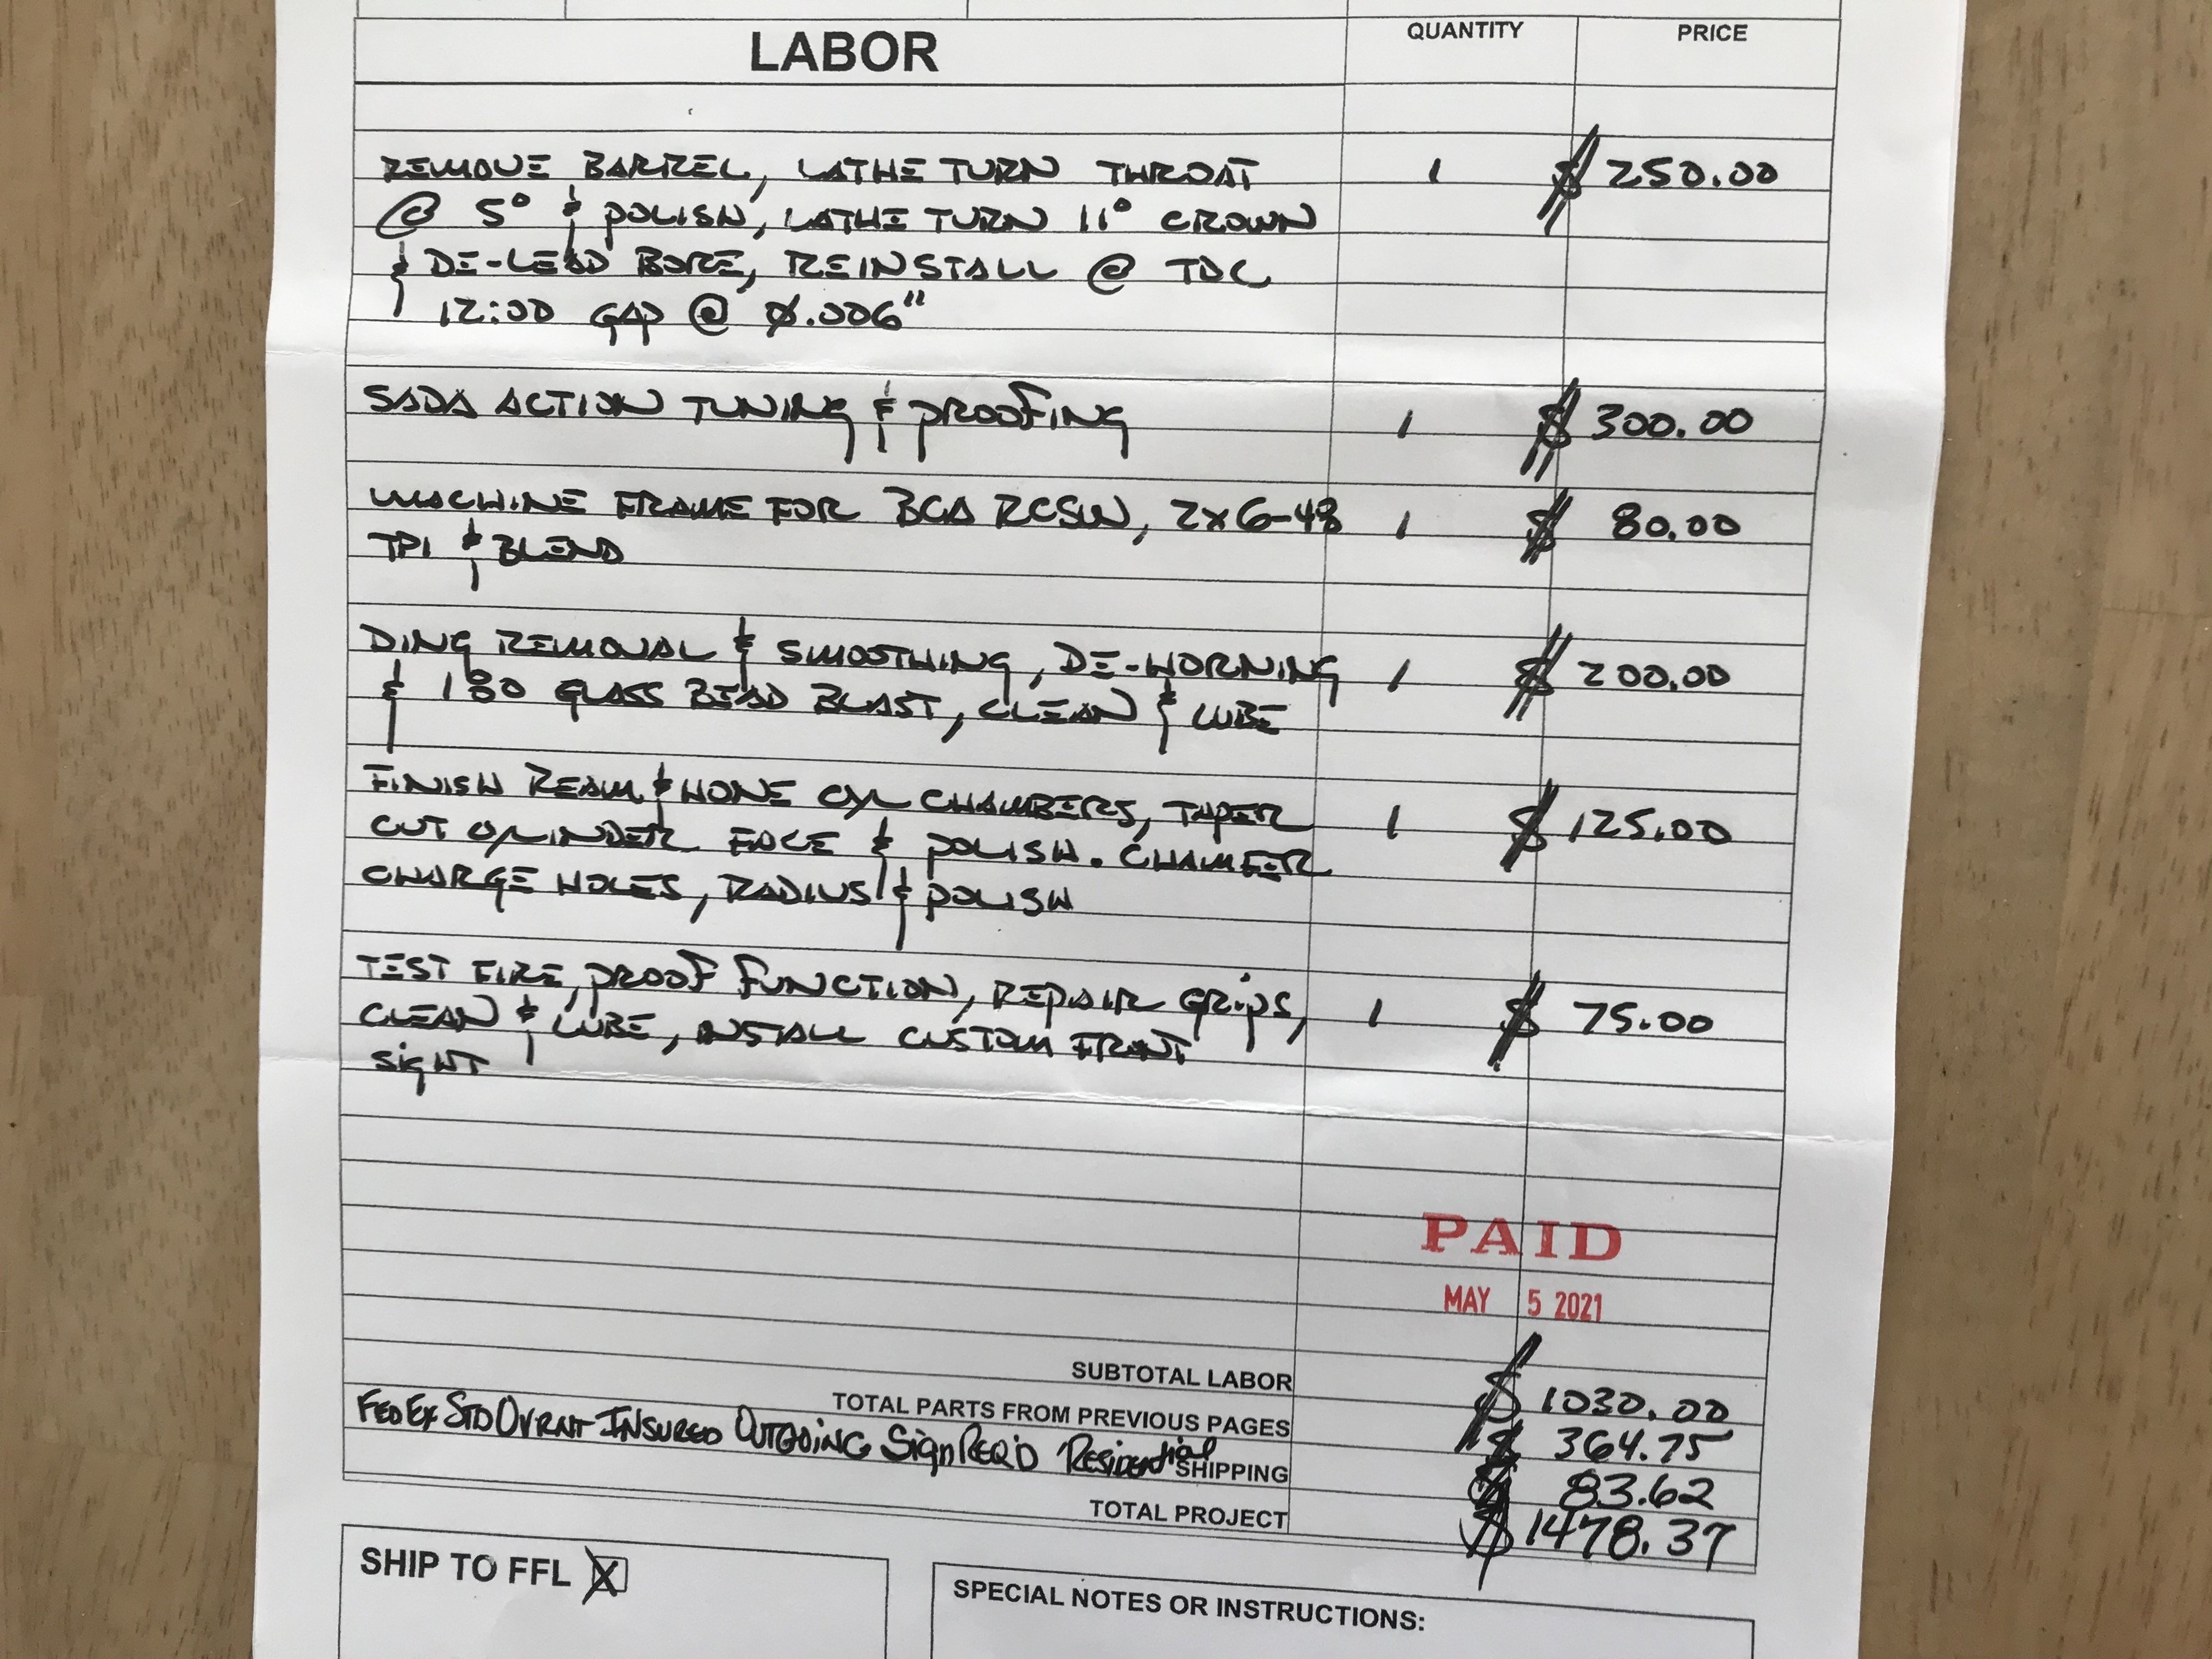 LABOR QUANTITY PRICE
REMOVE BARREL, LATHE TURN THROAT 1 $ 250.00
@ 5° & POLISH, LATHE TURN 11° CROWN
& DE-LEAD BORE, REINSTALL @ TDC
12:00 GAP @ 0.006"
SADA ACTION TUNING & PROOFING 1 $ 300.00
MACHINE FRAME FOR BCA RCSW, 2x6-48 1 $ 80.00
TPI & BLEND
DING REMOVAL & SMOOTHING, DE-HORNING 1 $ 200.00
& 180 GLASS BEAD BLAST, CLEAN & LUBE
FINISH REAM & HONE CYL CHAMBERS, TAPER 1 $ 125.00
CUT CYLINDER FACE & POLISH. CHAMFER
CHARGE HOLES, RADIUS & POLISH
TEST FIRE, PROOF FUNCTION, REPAIR GRIPS, 1 $ 75.00
CLEAN & LUBE, INSTALL CUSTOM FRONT
SIGHT
PAID
MAY 5 2021
SUBTOTAL LABOR $ 1030.00
TOTAL PARTS FROM PREVIOUS PAGES $ 364.75
FEDEX STD OVRNT INSURED OUTGOING Sign REQ'D Residential SHIPPING $ 83.62
TOTAL PROJECT $ 1478.37
SHIP TO FFL X
SPECIAL NOTES OR INSTRUCTIONS: